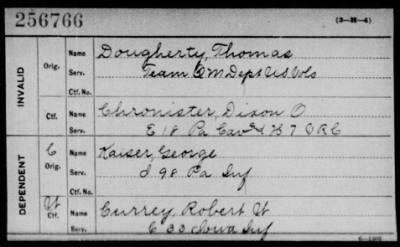 256766 (3-M-4)
INVALID
Orig. Name Dougherty, Thomas
Serv. Team Q M Dept US Vols
Ctf. No.
Ctf. Name Chronister, Dixon O
Serv. E 18 Pa Cav & K 7 O R C
DEPENDENT
C Orig. Name Kaiser, George
Serv. I 98 Pa Inf
Ctf. No.
W Ctf. Name Currey, Robert W
Serv. C 33 Iowa Inf